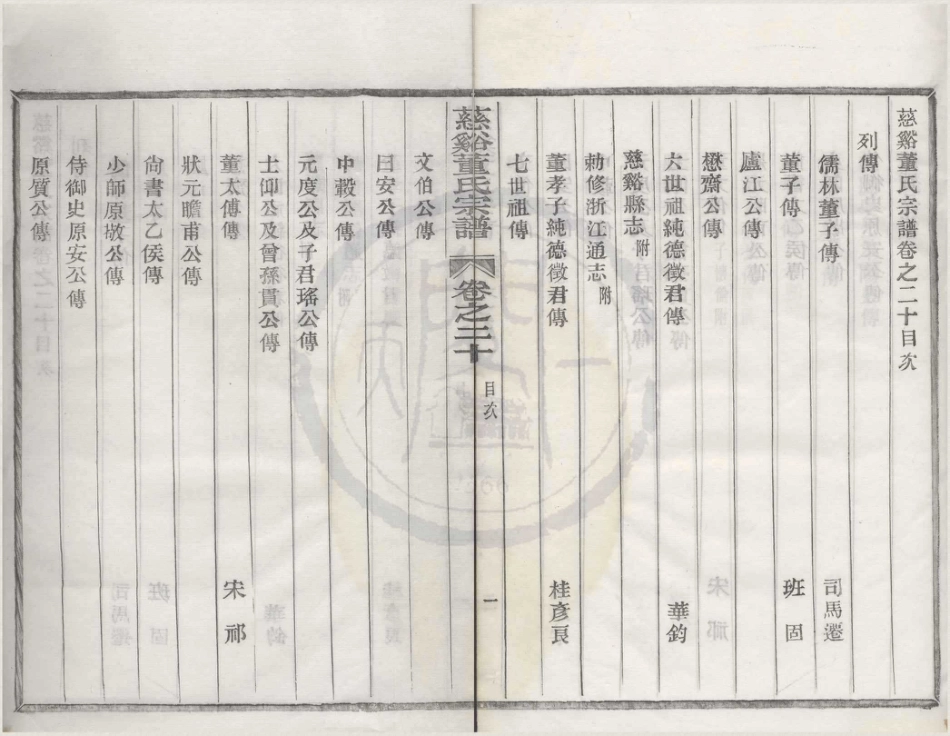 慈谿董氏宗譜卷之二十目次
列傳
儒林董子傳 司馬遷
董子傳 班固
廬江公傳
懋齋公傳
六世祖純德徵君傳 華鈞
慈谿縣志附
勅修浙江通志附
董孝子純德徵君傳 桂彥良
七世祖傳
慈谿董氏宗譜 卷之二十 目次 一
文伯公傳
曰安公傳
中毅公傳
元度公及子君瑤公傳
士仰公及曾孫貫公傳
董太傅傳 宋祁
狀元瞻甫公傳
尚書太乙侯傳
少師原敬公傳
侍御史原安公傳
原質公傳